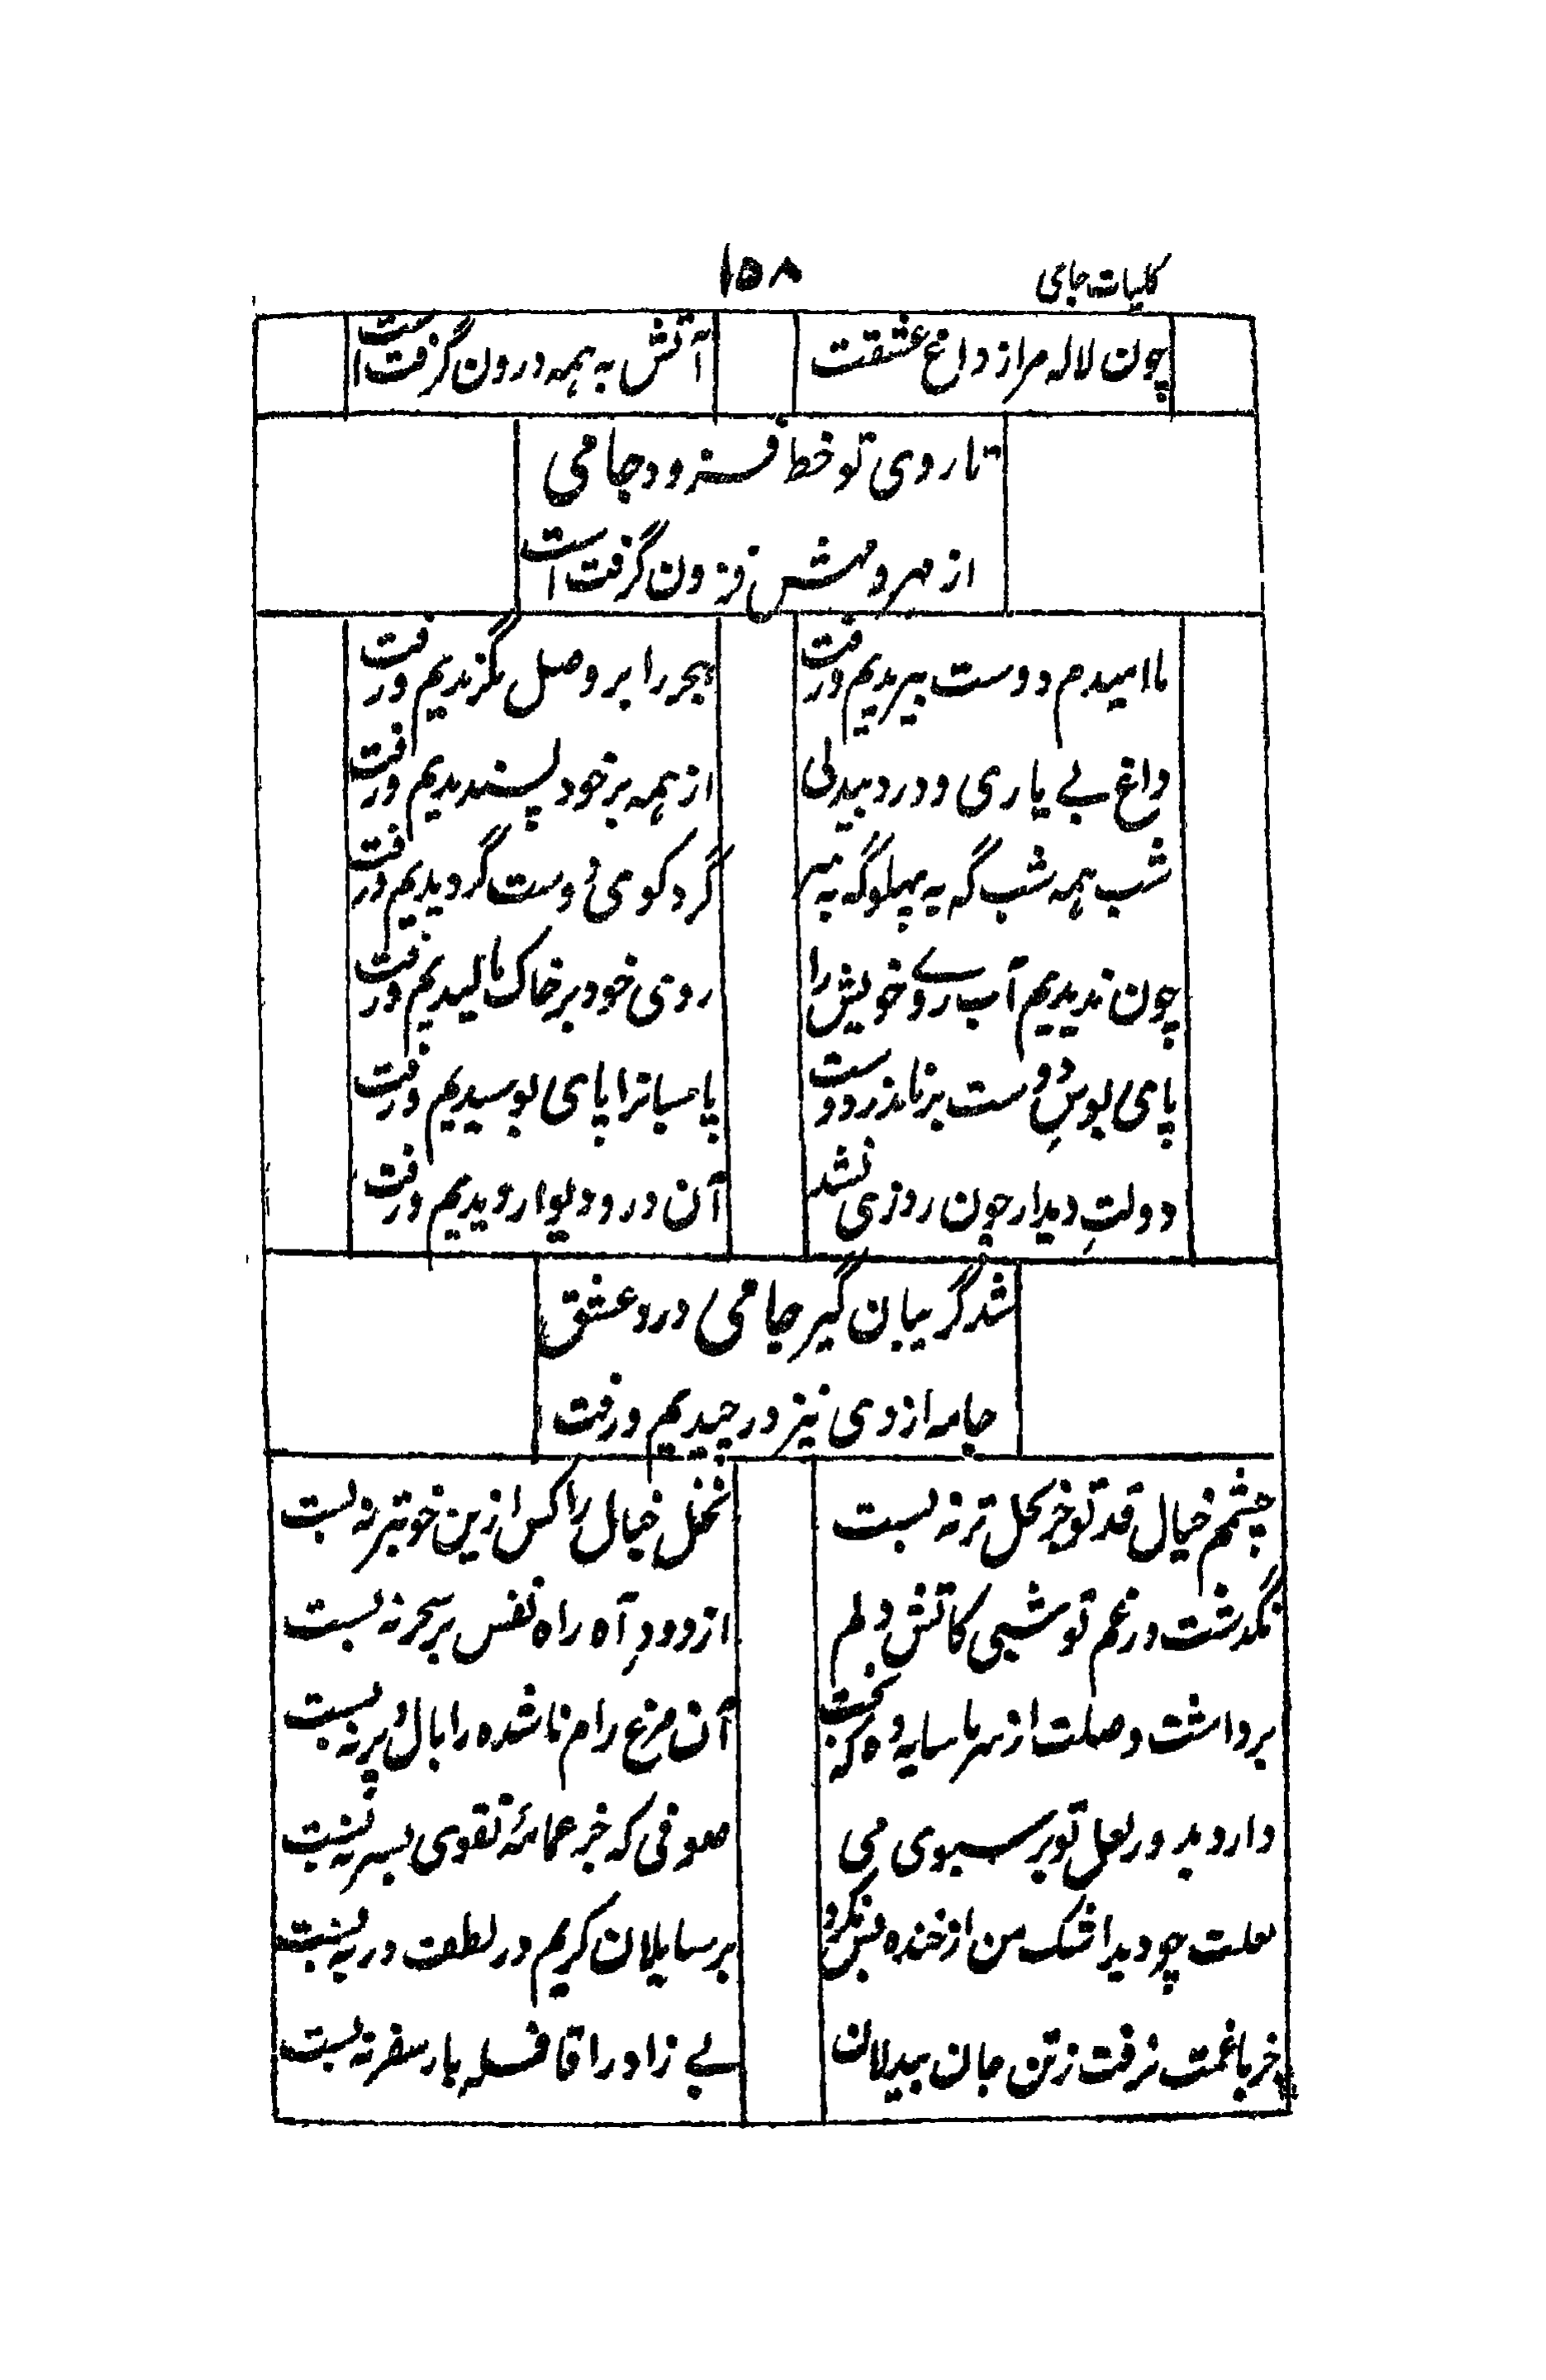 کلیات جامی
۱۵۸
چون لاله مرا ز داغ عشقت
آتش به همه درون گرفت است
تا روی تو خط فزود جامی
از مهر و مهش فزون گرفت است
ما امیدم دوست ببریدیم و رفت
هجر را بر وصل بگزیدیم و رفت
داغ بے یاری و درد بیدلی
از همه بر خود پسندیدیم و رفت
شب همه شب گه به پهلو گه به سر
گرد کوی دوست گردیدیم و رفت
چون ندیدیم آب روے خویش را
روی خود بر خاک مالیدیم و رفت
پای بوسِ دوست بر نامد ز دوست
پاسبانرا پای بوسیدیم و رفت
دولتِ دیدار چون روزی نشد
آن در و دیوار و دیدیم و رفت
شد گریبان گیر جامی درد عشق
جامه از وی نیز در چیدیم و رفت
چشمم خیال قد تو جز کحل تر نه بست
نخل خیال را کس ازین خوبتر نه بست
نگذشت در غم تو شبی کاتش دلم
از دودِ آه راه نفس بر سحر نه بست
برداشت وصلت از سر ما سایه وه که بخت
آن مرغ رام ناشده را بال و پر نه بست
دارد بدور لعل تو بر سبوی می
صوفی که جز عمامهٔ تقوی بسر نه بست
لعلت چو دید اشک من از خنده بس نکرد
بر سایلان کریم در لطف در نه بست
جز با غمت نرفت ز تن جان بیدلان
بے زاد راه قافله بار سفر نه بست